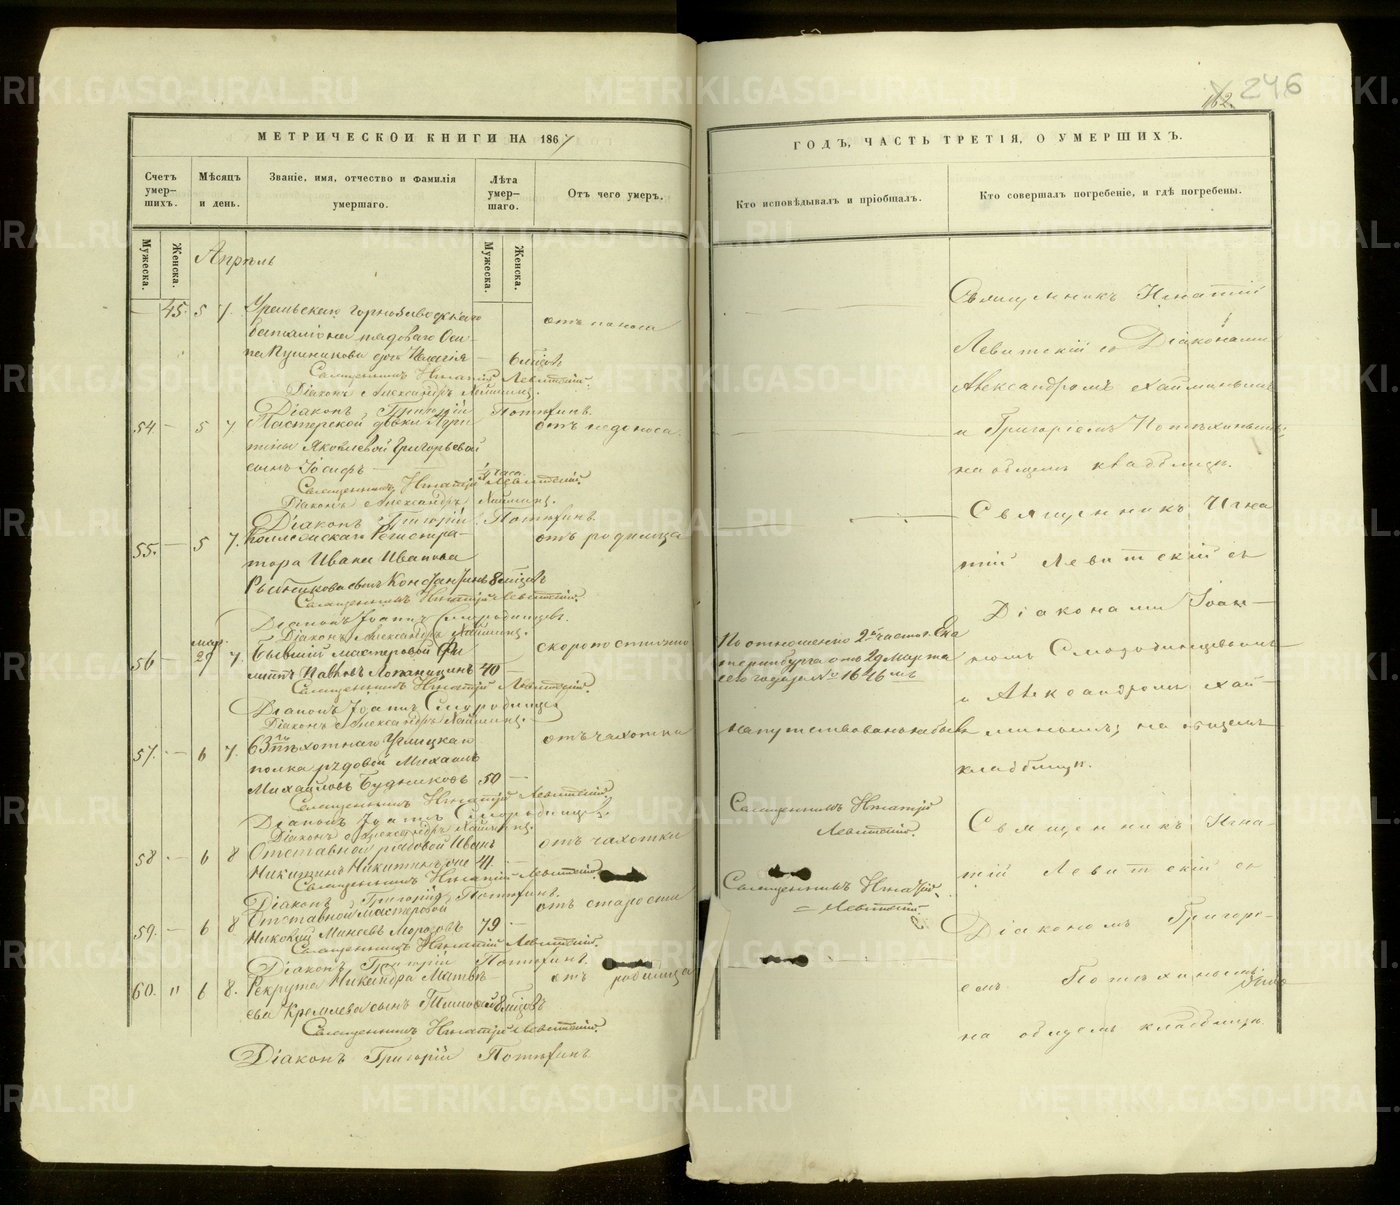 162. 246
МЕТРИЧЕСКОЙ КНИГИ НА 1867
Счетъ умер-шихъ.
Мѣсяцъ и день.
Званіе, имя, отчество и фамилія умершаго.
Лѣта умер-шаго.
Отъ чего умеръ.
Мужеска.
Женска.
Мужеска.
Женска.
Апрѣль
45. 5 7. Уральскаго горнозаводскаго отъ поноса
баталіона рядоваго Оси-
па Пушникова дочь Пелагія — 6 мѣсяц
Священникъ Игнатій Левитскій.
Діаконъ Александръ
Діаконъ Григорій Потѣхинъ.
54 — 5 7 Мастерской дѣвки Ири- отъ
тины Яковлевой Григорьевой
сынъ Іосифъ часа
Священникъ Игнатій Левитскій.
Діаконъ Александръ
Діаконъ Григорій Потѣхинъ.
55. — 5 7. Коллежскаго Регистра- отъ родимца
тора Ивана Иванова
сынъ Константинъ 8 мѣсяц
Священникъ Игнатій Левитскій.
Діаконъ Іоаннъ Смородинцевъ.
Діаконъ Александръ
56 — мар. 29 7. Бывшій мастеровой Фи- скоропостижно
липпъ Павловъ 40 —
Священникъ Игнатій Левитскій.
Діаконъ Іоаннъ Смородинцевъ
Діаконъ Александръ
57. — 6 7. 63 пѣхотнаго Углицкаго отъ чахотки
полка рядовой Михаилъ
Михайловъ Будниковъ 50 —
Священникъ Игнатій Левитскій.
Діаконъ Іоаннъ Смородинцевъ.
Діаконъ Александръ
58 — 6 8 Отставной рядовой Иванъ отъ чахотки
Никитинъ 41. —
Священникъ Игнатій Левитскій.
Діаконъ Григорій Потѣхинъ.
59. — 6 8 Отставной мастеровой отъ старости
Николай Минеевъ Морозовъ 79 —
Священникъ Игнатій Левитскій.
Діаконъ Григорій Потѣхинъ.
60. " 6 8. Рекрута Никандра Матвѣ- отъ родимца
ева Кремлева сынъ Тимофей 8 мѣсяцовъ
Священникъ Игнатій Левитскій.
Діаконъ Григорій Потѣхинъ
ГОДЪ, ЧАСТЬ ТРЕТІЯ, О УМЕРШИХЪ.
Кто исповѣдывалъ и пріобщалъ.
Кто совершалъ погребеніе, и гдѣ погребены.
Священникъ Игнатій
Левитскій со Діаконами
Александромъ
и Григоріемъ Потѣхинымъ
на общемъ кладбищѣ.
Священникъ Игна
тій Левитскій съ
Діаконами Іоан-
По отношенію 2й части г. Ека
номъ Смородинцевымъ
теринбурга отъ 29 Марта
сего года за № 1646 мъ
и Александромъ
на общемъ
кладбищѣ.
Священникъ Игнатій
Левитскій.
Священникъ Игна-
тій Левитскій съ
Священникъ Игнатій
Левитскій
Діакономъ Григорі-
емъ Потѣхинымъ
на общемъ кладбищѣ
METRIKI.GASO-URAL.RU